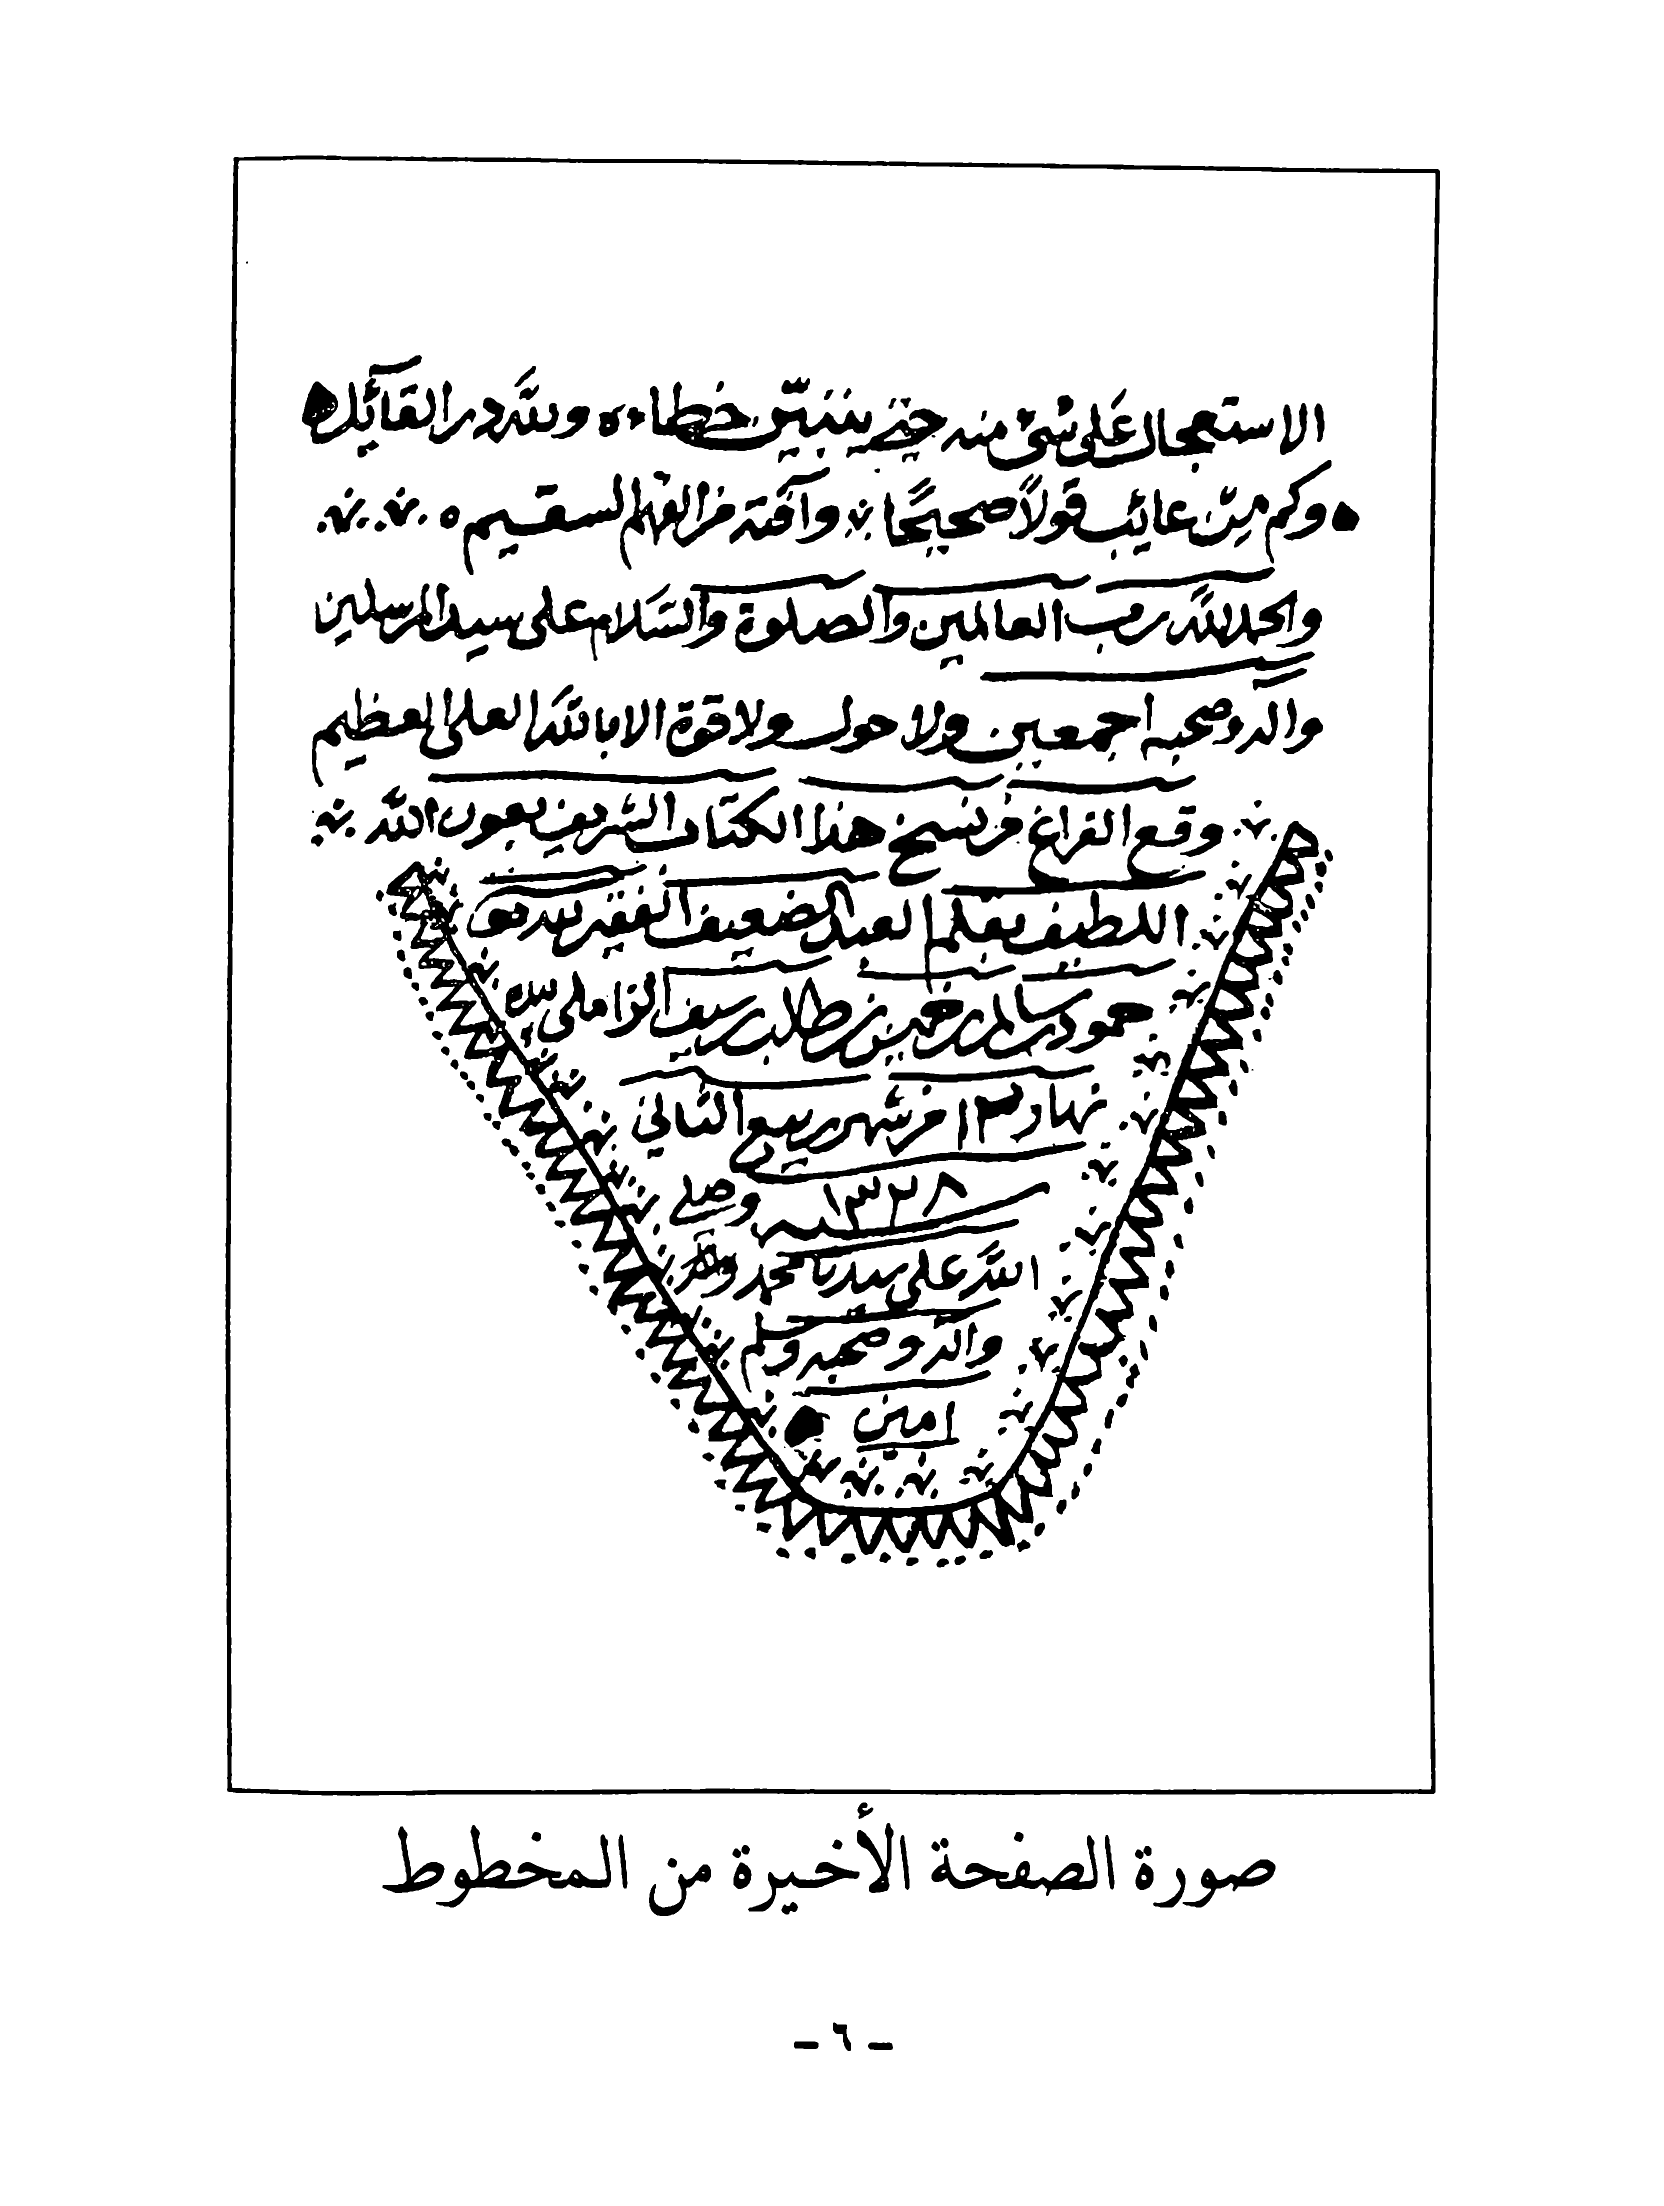 الاستعجال على شئ منه حتى يتبيّن خطاءه ولله در القآئل
وكم مِن عائب قولاً صحيحًا وآفته من الفهم السقيم
والحمد لله رب العالمين والصلوة والسّلام على سيد المرسلين
واله وصحبه اجمعين ولا حول ولا قوة الا بالله العلى العظيم
وقع الفراغ من نسخ هذا الكتاب الشريف بعون الله
اللطيف بقلم العبد الضعيف الفقير لله
حمود بن سالم بن خميس بن طالب بن سيف الزاملى
نهار ١٣ من شهر ربيع الثاني
سنة ١٣٢٨ وصلى
الله على سيدنا محمد
واله وصحبه وسلم
امين
صورة الصفحة الأخيرة من المخطوط
- ٦ -